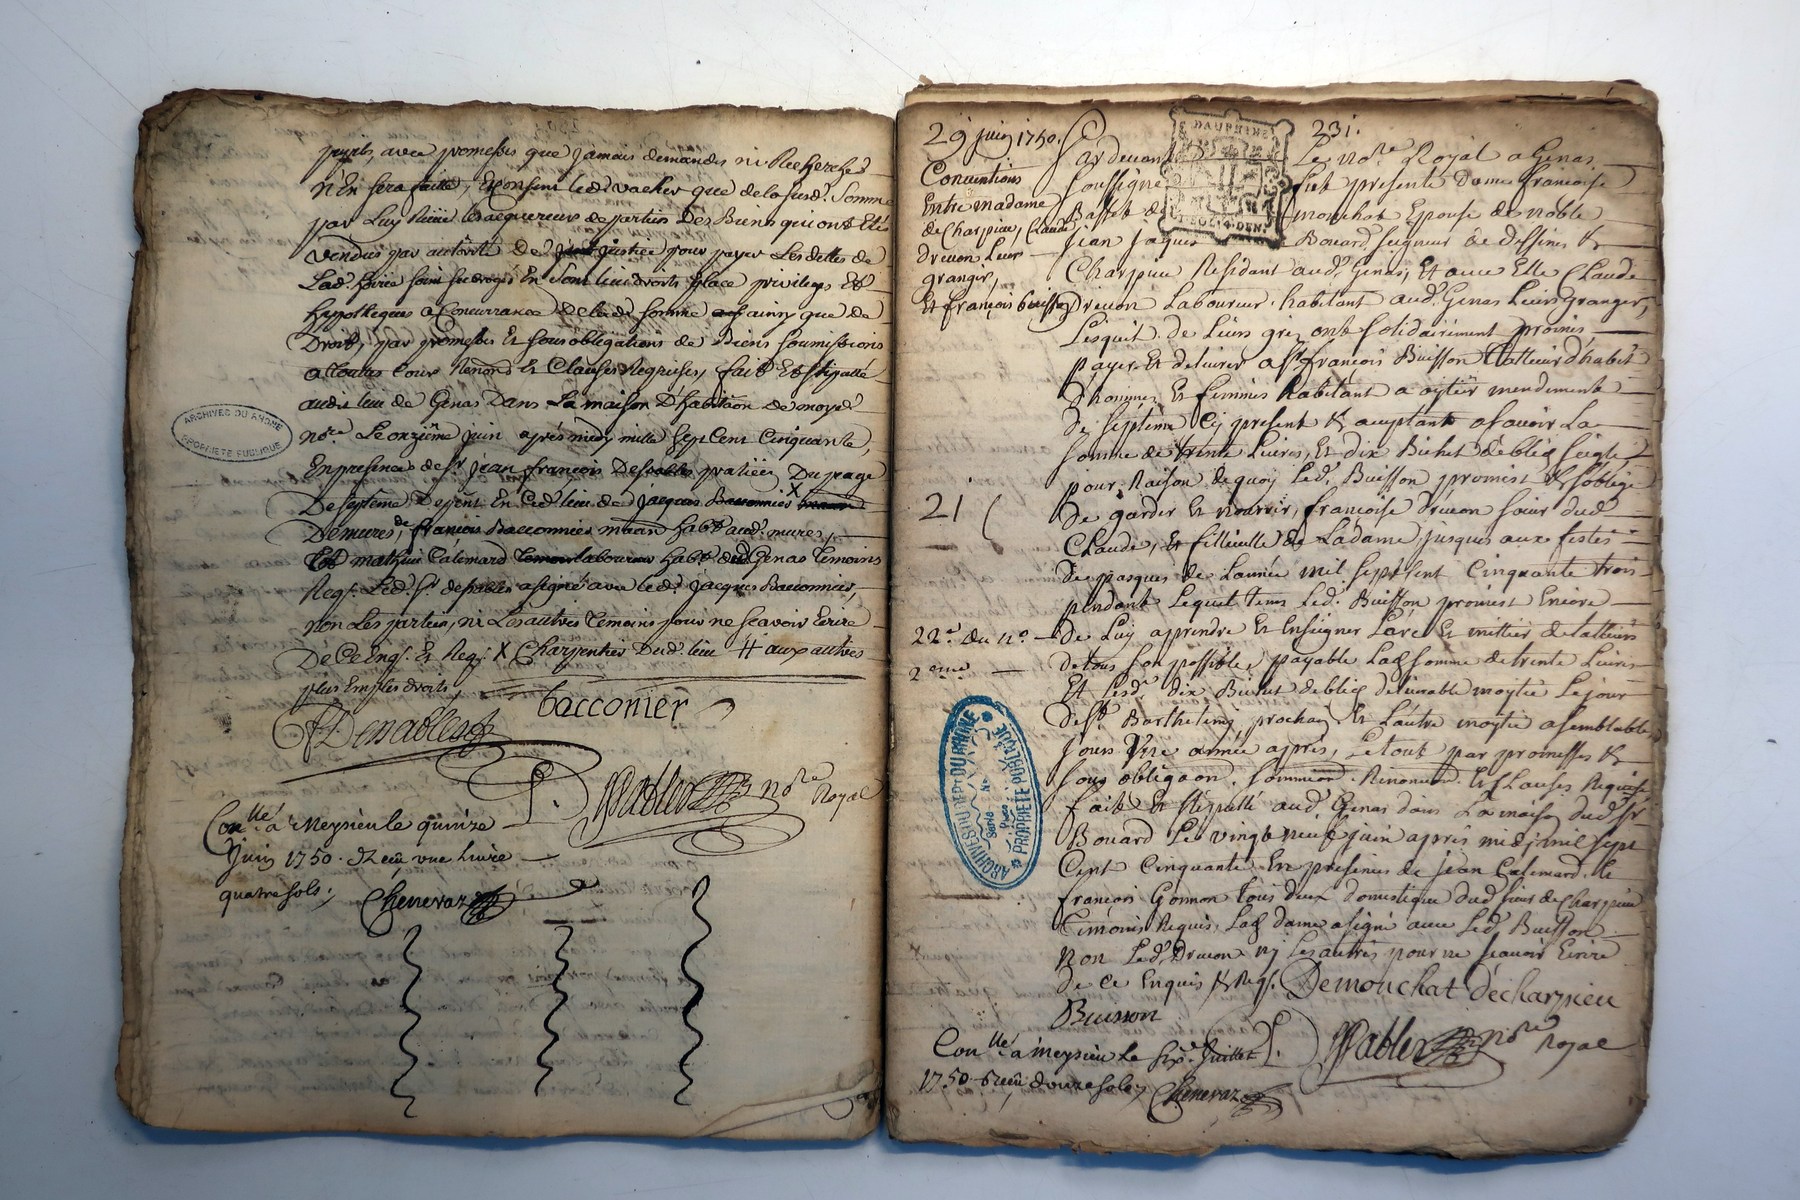 payés, avec promesses que jamais demandes ni Recherches
n'En sera faitte, Et consent led. vacher que de la susd. Somme
par Luy les acquereurs de parties Des Biens qui ont Etés
vendus par autorité De justice pour payer Les dettes de
Lad. hoirie soint subrogés En Sont lieu droits place privileges Et
hypotheques a Concurrance De lad. somme ainsy que de
Droit, par promesses Et sous obligations de Biens soumissions
a Toutes Cours Renons Et Clauses Requises, fait Et stipullé
audit lieu de Genas Dans La maison D'habitaõn de moyd.
nore. Le onzième juin après midy mille Sept Cent Cinquante,
En presence de Sr. jean françois Desvables Du peage
De septeme Et En Ced. lieu de jacques Bacconnier X
Demeures, de françois Bacconnier habt. aud. mures,
mathieu Calemard laboureur habt. dud. Genas Temoins
Reqs. Led. Sr. desvables a signé avec led. jacques Bacconnier,
non Les parties, ni Les autres Temoins pour ne scavoir Ecrire
De Ce Enqs. Et Reqs. X Charpentier Dud. lieu # aux autres
plus Emples droits,
bacconier
Desvables
nore Royal
Conllé a Meysieu le quinze
Juin 1750. Reçu une livre
quatre sols;
Chenevaz
ARCHIVES DU RHONE
PROPRIETE PUBLIQUE
29 juin 1750.
231.
Conventions
Entre madame
de Charpieu, Claude
Drevon Leur
granger,
Et françois buisson
Pardevant Le nore. Royal a Genas
soussigné fut presente Dame francoise
Basset de mouchat Epouse de noble
Jean Jaques Bouard, seigneur de Dessines &
Charpieu Residant aud. Genas, Et avec Elle Claude
Drevon Laboureur habitant aud. Genas Leurs Granger,
Lesquels de Leurs grez ont solidairement promis
payer Et delivrer a Sr. francois Buisson Talleur d'habit
d'hommes Et femmes habitant a mendement
De septeme Cy present & aceptant asavoir La
somme de trente Livres, Et dix Bichet de bled seigle
pour Raison de quoy Led. Buisson promest & soblige
De garder Et nourrir, francoise Drevon sœur dud.
Claude, Et fillieulle de Ladame, jusques aux festes
De pasques de Lannée mil sept Cent Cinquante trois
pendant Lequel tems Led. Buisson promest Encore
De Luy aprendre Et Enseigner Lart Et mettier de talleurs
de tous son possible, payable Lad. somme de trente Livres
Et lesd. dix Bichet de bled delivrable moytié Lejour
de St. Barthelemy prochain Et Lautre moytié a semblable
Jours Une année après, Le tout par promesses &
sous obligaõn. Et Clauses Requises
fait Et stipullé aud. Genas dans La maison dud. Sr.
Bouard Le vingt neuf juin après midy mil sept
Cent Cinquante En presences de jean Calemard &
francois Gonnon tous deux domestique dud. sieur de Charpieu
Temoins Requis, Lad. dame a signé avec Led. Buisson
non Led. Drevon ny Les autres pour ne scavoir Ecrire
De ce Enquis & Reqs.
Demouchat decharpieu
Buisson
21
22e. du no.
2eme
nore Royal
Conllé a Meysieu le six Juillet
1750. Reçu douze sols,
Chenevaz
ARCHIVES DU DEPT. DU RHONE
PROPRIÉTÉ PUBLIQUE
Série
Nº